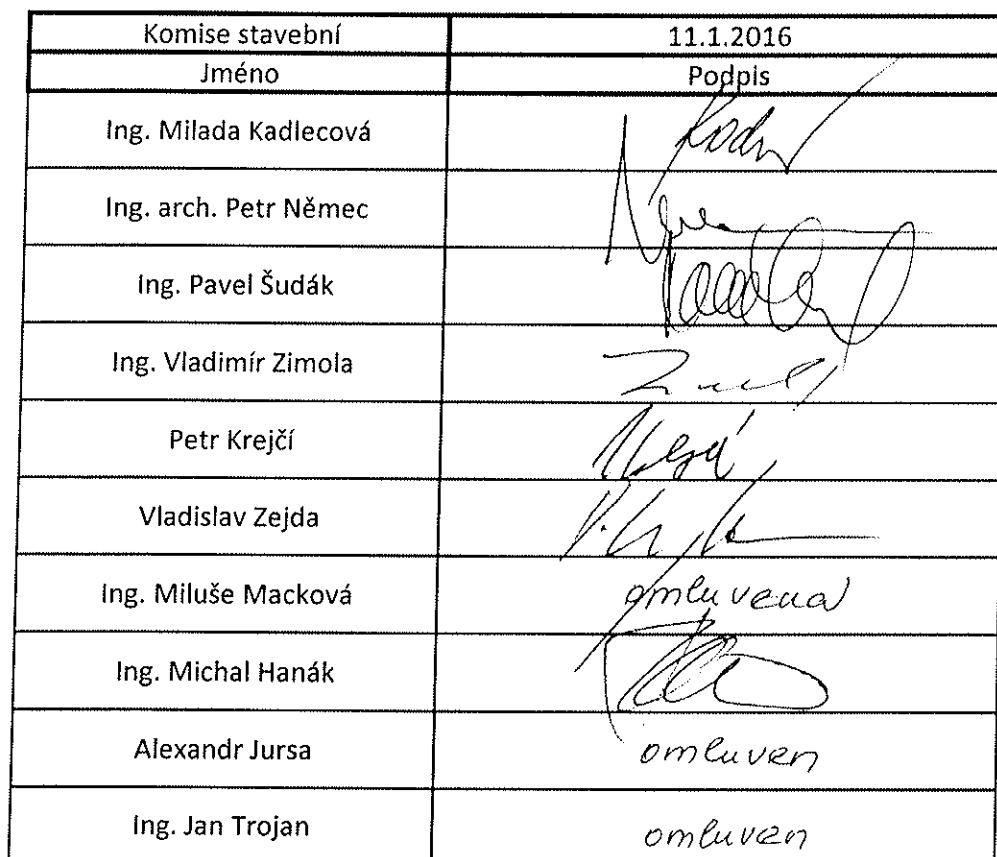 Komise stavební 11.1.2016
Jméno Podpis
Ing. Milada Kadlecová
Ing. arch. Petr Němec
Ing. Pavel Šudák
Ing. Vladimír Zimola
Petr Krejčí
Vladislav Zejda
Ing. Miluše Macková omluvena
Ing. Michal Hanák
Alexandr Jursa omluven
Ing. Jan Trojan omluven